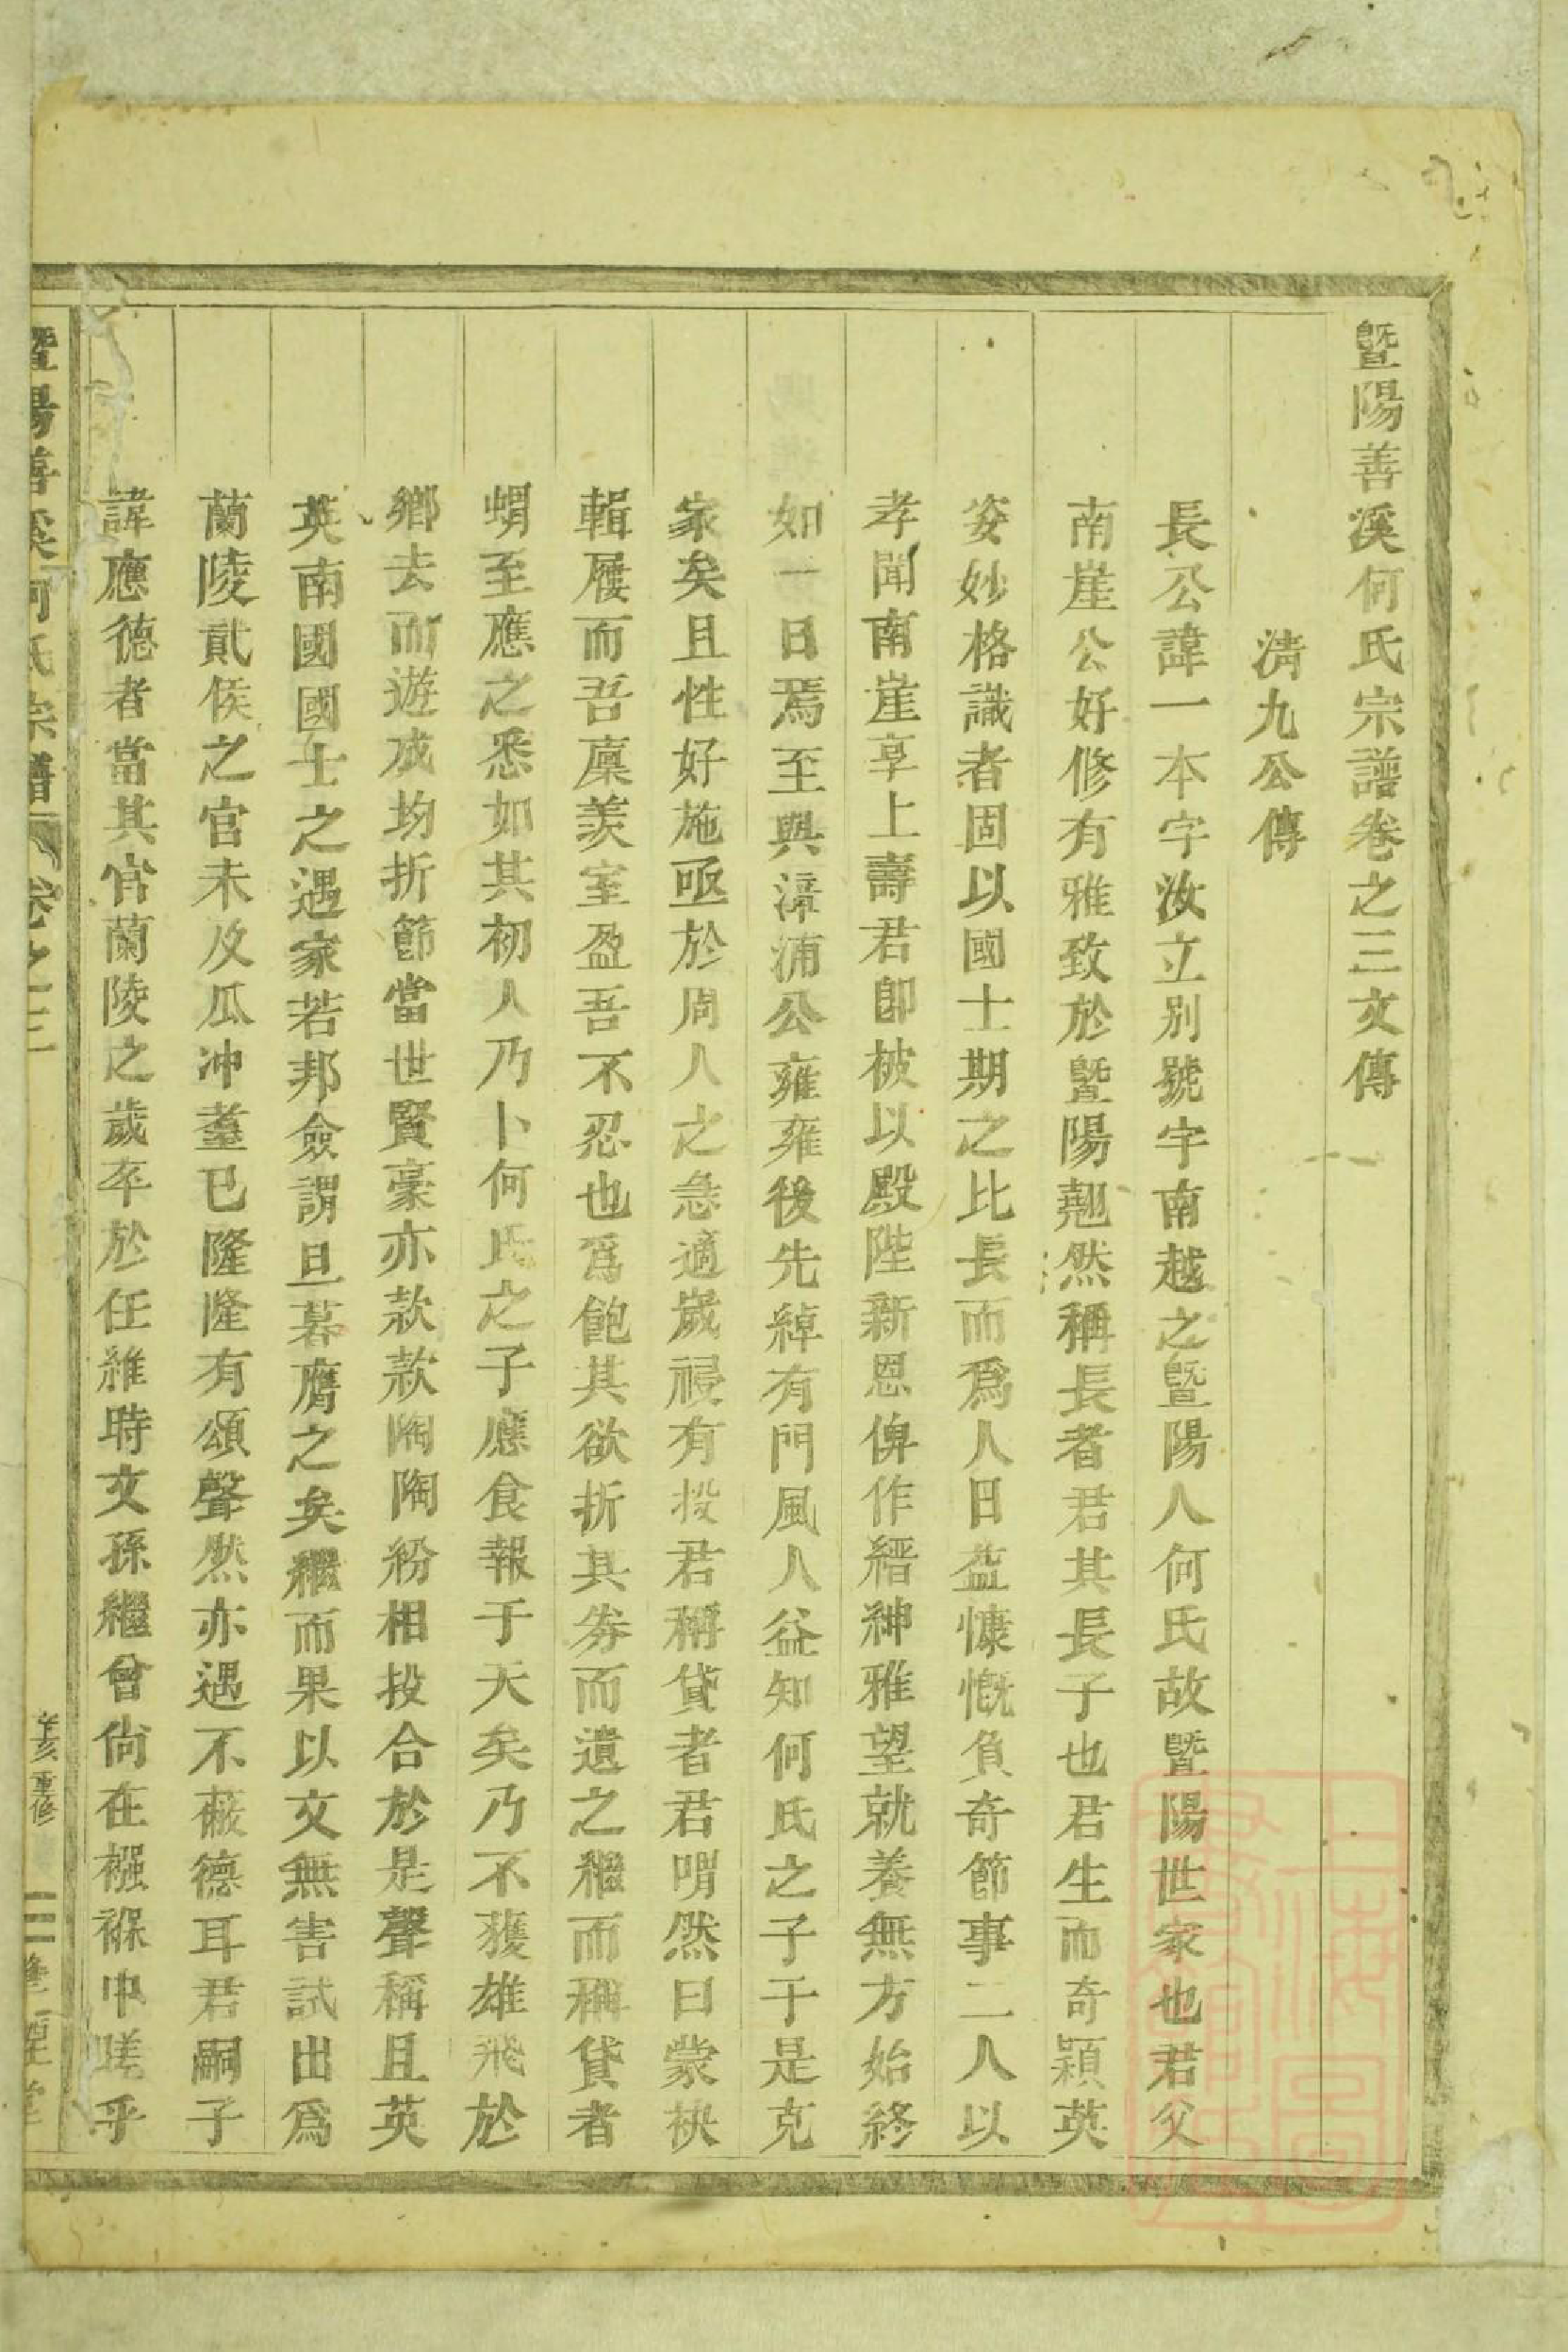 暨陽善溪何氏宗譜卷之三文傳
清九公傳
長公諱一本字汝立別號宇南越之暨陽人何氏故暨陽世家也君父
南崖公好修有雅致於暨陽翹然稱長者君其長子也君生而奇穎英
姿妙格識者固以國士期之比長而爲人日益慷慨負奇節事二人以
孝聞南崖享上壽君卽被以殿陛新恩俾作縉紳雅望就養無方始終
如一日焉至與漳浦公雍雍後先綽有門風人益知何氏之子于是克
家矣且性好施亟於周人之急適歲祲有投君稱貸者君喟然曰蒙袂
輯屨而吾廩羨室盈吾不忍也爲飽其欲折其券而遺之繼而稱貸者
蝟至應之悉如其初人乃卜何氏之子應食報于天矣乃不獲雄飛於
鄉去而遊成均折節當世賢豪亦款款陶陶紛相投合於是聲稱且英
英南國國士之遇家若邦僉謂旦暮膺之矣繼而果以文無害試出爲
蘭陵貳侯之官未及瓜冲耋已隆隆有頌聲然亦遇不蔽德耳君嗣子
諱應德者當其官蘭陵之歲卒於任維時文孫繼曾尙在襁褓中嗟乎
暨陽善溪何氏宗譜 卷之三 辛亥重修 二